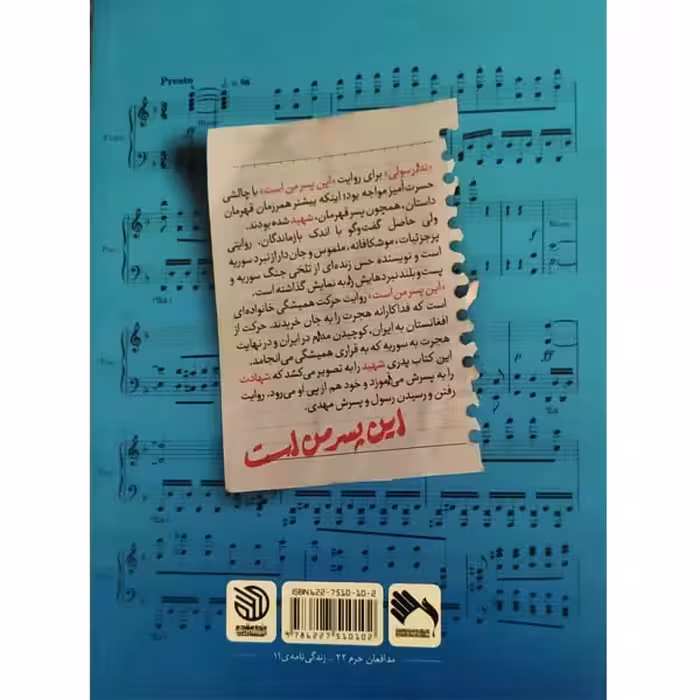 Presto
«ندا رسولی» برای روایت «این پسر من است» با چالشی
حسرت‌آمیز مواجه بود؛ اینکه بیشتر همرزمان قهرمان
داستان، همچون پسر قهرمان، شهید شده بودند.
ولی حاصل گفت‌وگو با اندک بازماندگان، روایتی
پرجزئیات، موشکافانه، ملموس و جان‌دار از نبرد سوریه
است و نویسنده حس زنده‌ای از تلخی جنگ سوریه و
پست و بلند نبردهایش را به نمایش گذاشته است.
«این پسر من است» روایت حرکت همیشگی خانواده‌ای
است که فداکارانه هجرت را به جان خریدند. حرکت از
افغانستان به ایران، کوچیدن مدام در ایران و در نهایت
هجرت به سوریه که به قراری همیشگی می‌انجامد.
این کتاب پدری شهید را به تصویر می‌کشد که شهادت
را به پسرش می‌آموزد و خود هم از پی او می‌رود. روایت
رفتن و رسیدن رسول و پسرش مهدی.
این پسر من است
ISBN 622-7510-10-2
9 786227 510102
مدافعان حرم ۲۲ - زندگی‌نامه‌ی ۱۱